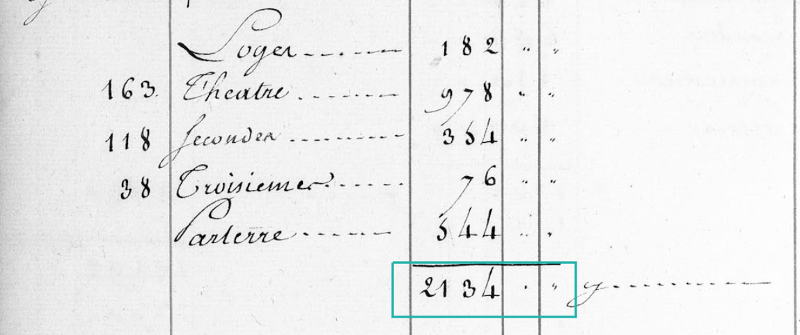 Loges 182 " "
163 Theatre 978 " "
118 secondes 354 " "
38 Troisiemes 76 " "
Parterre 544 " "
2134 " "